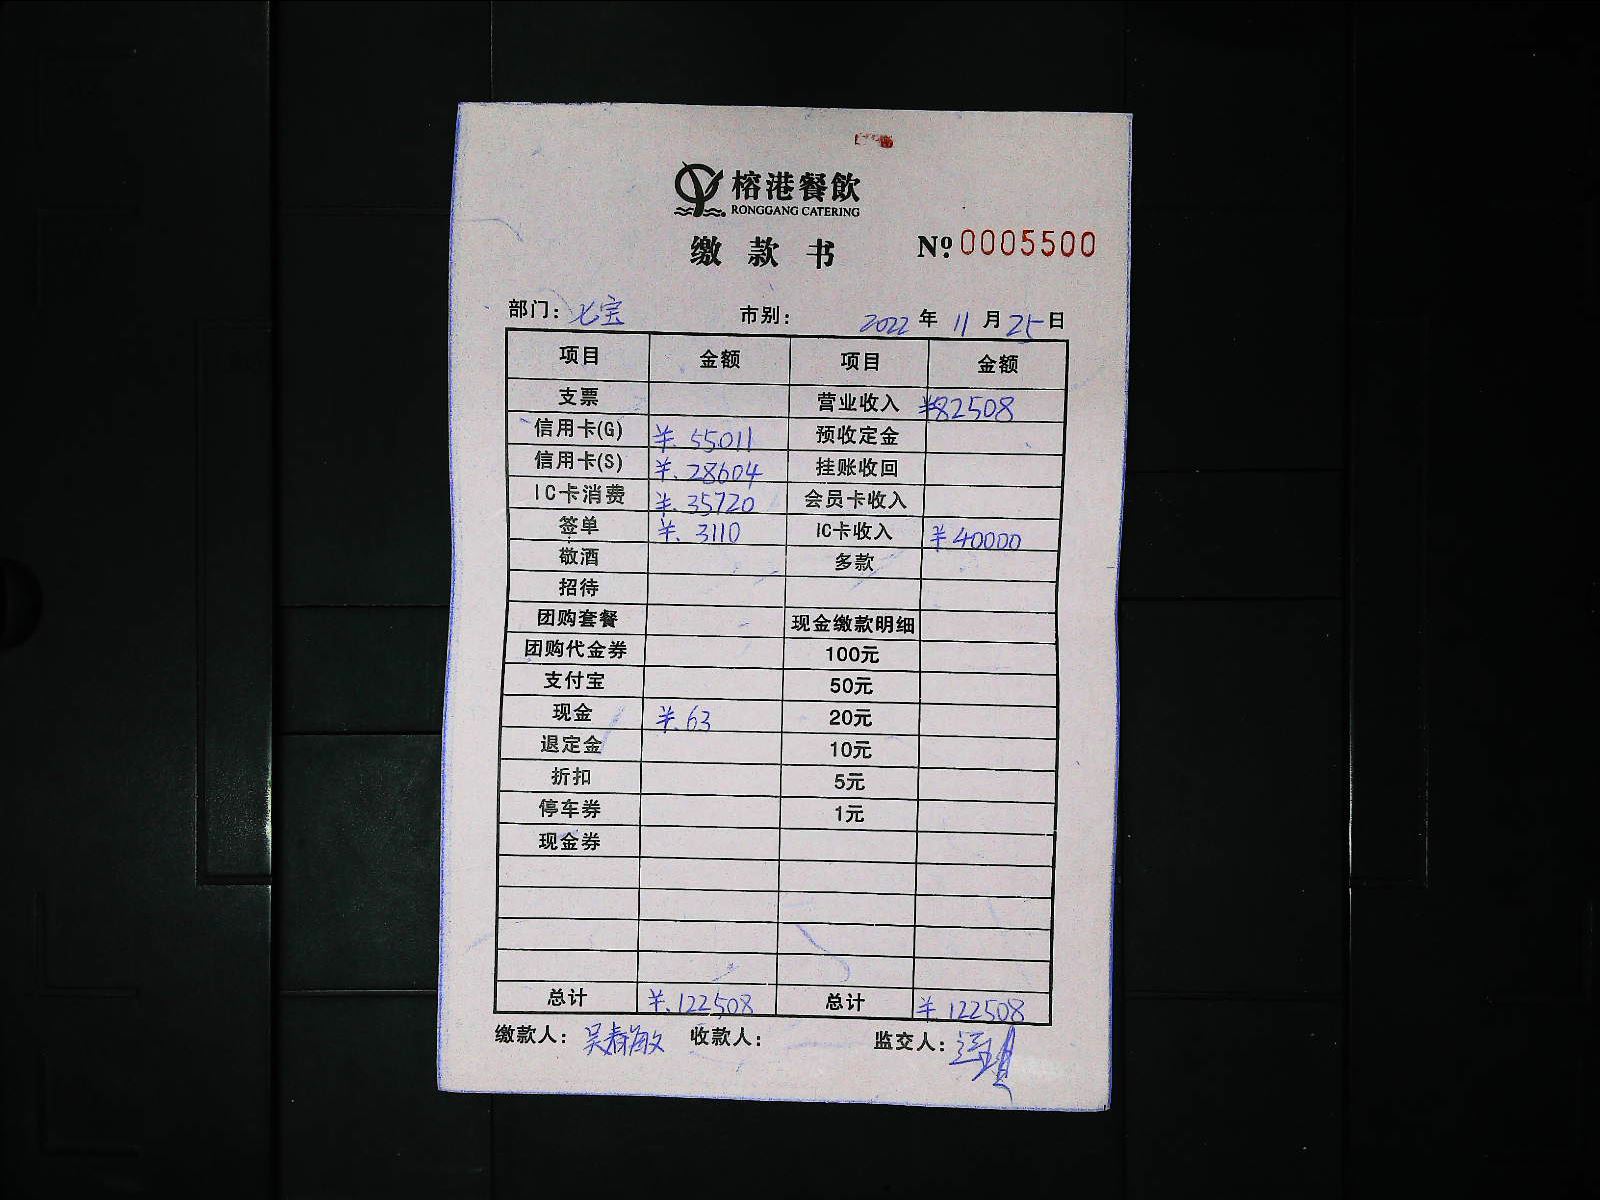 榕港餐飲
RONGGANG CATERING
缴款书 №:0005500
部门：七宝 市别： 2022年11月25日
项目 金额 项目 金额
支票 营业收入 ¥82508
信用卡(G) ¥.55011 预收定金
信用卡(S) ¥.28604 挂账收回
IC卡消费 ¥.35720 会员卡收入
签单 ¥.3110 IC卡收入 ¥40000
敬酒 多款
招待
团购套餐 现金缴款明细
团购代金券 100元
支付宝 50元
现金 ¥.63 20元
退定金 10元
折扣 5元
停车券 1元
现金券
总计 ¥.122508 总计 ¥.122508
缴款人：吴春敏 收款人： 监交人：